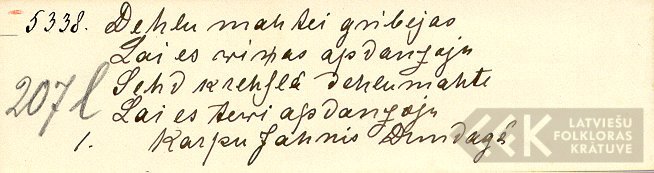 5338. Dehlu mahtei gribejas
Lai es wiņas apdanzoju
Sehd krehslâ dehlumahte
207 l
Lai es tewi apdanzoju
1. Karpu Jahnis Dundagâ
LATVIEŠU
FOLKLORAS
KRĀTUVE